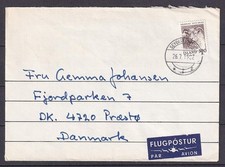 Fru Gemma Johansen
Fjordparken 7
DK. 4720 Præstø
Danmark
FLUGPÓSTUR
PAR AVION